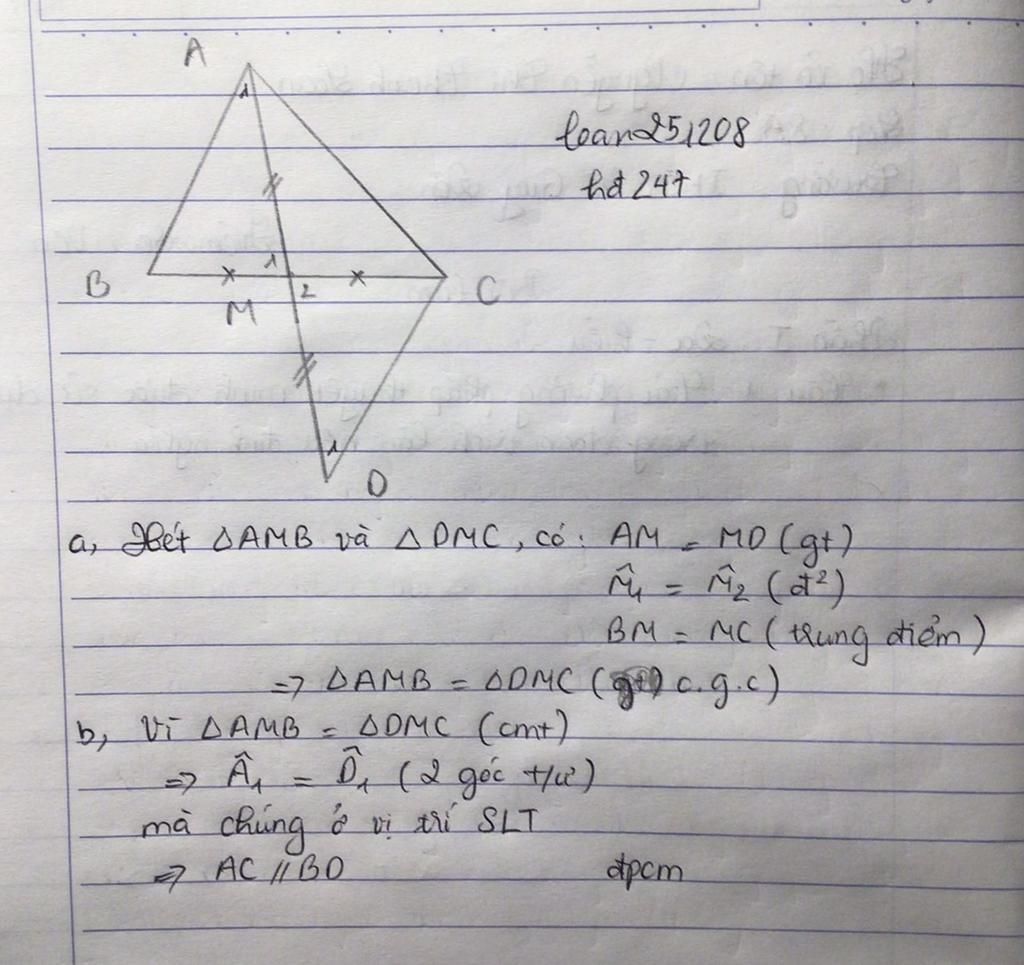 A
1
loan251208
hđ247
B
1
2
M
C
1
D
a, Xét △AMB và △DMC, có: AM = MD (gt)
M̂₁ = M̂₂ (đ²)
BM = MC (trung điểm)
=> △AMB = △DMC (c.g.c)
b, Vì △AMB = △DMC (cmt)
=> Â₁ = D̂₁ (2 góc t/ư)
mà chúng ở vị trí SLT
=> AC // BD đpcm